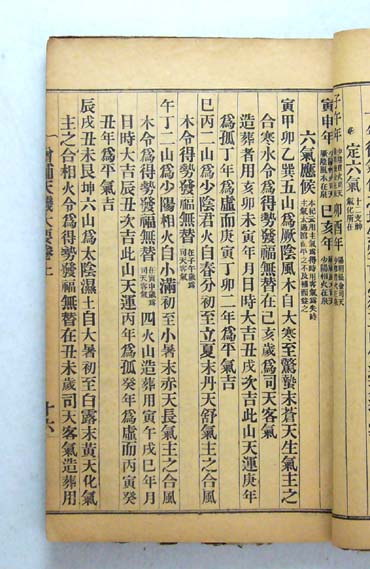 子午年
卯酉年
定六气
寅申年
巳亥年
六氣應候
寅甲卯乙巽五山為厥陰風木自大寒至驚蟄末蒼天生氣主之
合寒水令為得勢發福無替在己亥歲爲司天客氣
造葬用亥卯未寅年月日時大吉丑戌次吉此山天運庚年
爲孤丁年爲虛而庚寅丁卯二年爲平氣吉
巳丙二山爲少陰君火自春分初至立夏末丹天舒氣主之合風
木令爲得勢發福無替在子午歲爲司天客氣
午丁二山爲少陽相火自小滿初至小暑末赤天長氣主之合風
木令爲得勢發福無替在寅申歲爲司天客氣四火山造葬用寅午戌巳年月
日時大吉辰丑次吉此山天運丙年爲孤癸年爲虛而丙寅癸
丑年爲平氣吉
辰戌丑未艮坤六山爲太陰濕土自大暑初至白露末黄天化氣
主之合相火令爲得勢發福無替在丑未歲司天客氣造葬用
增補天機大要卷上
十六